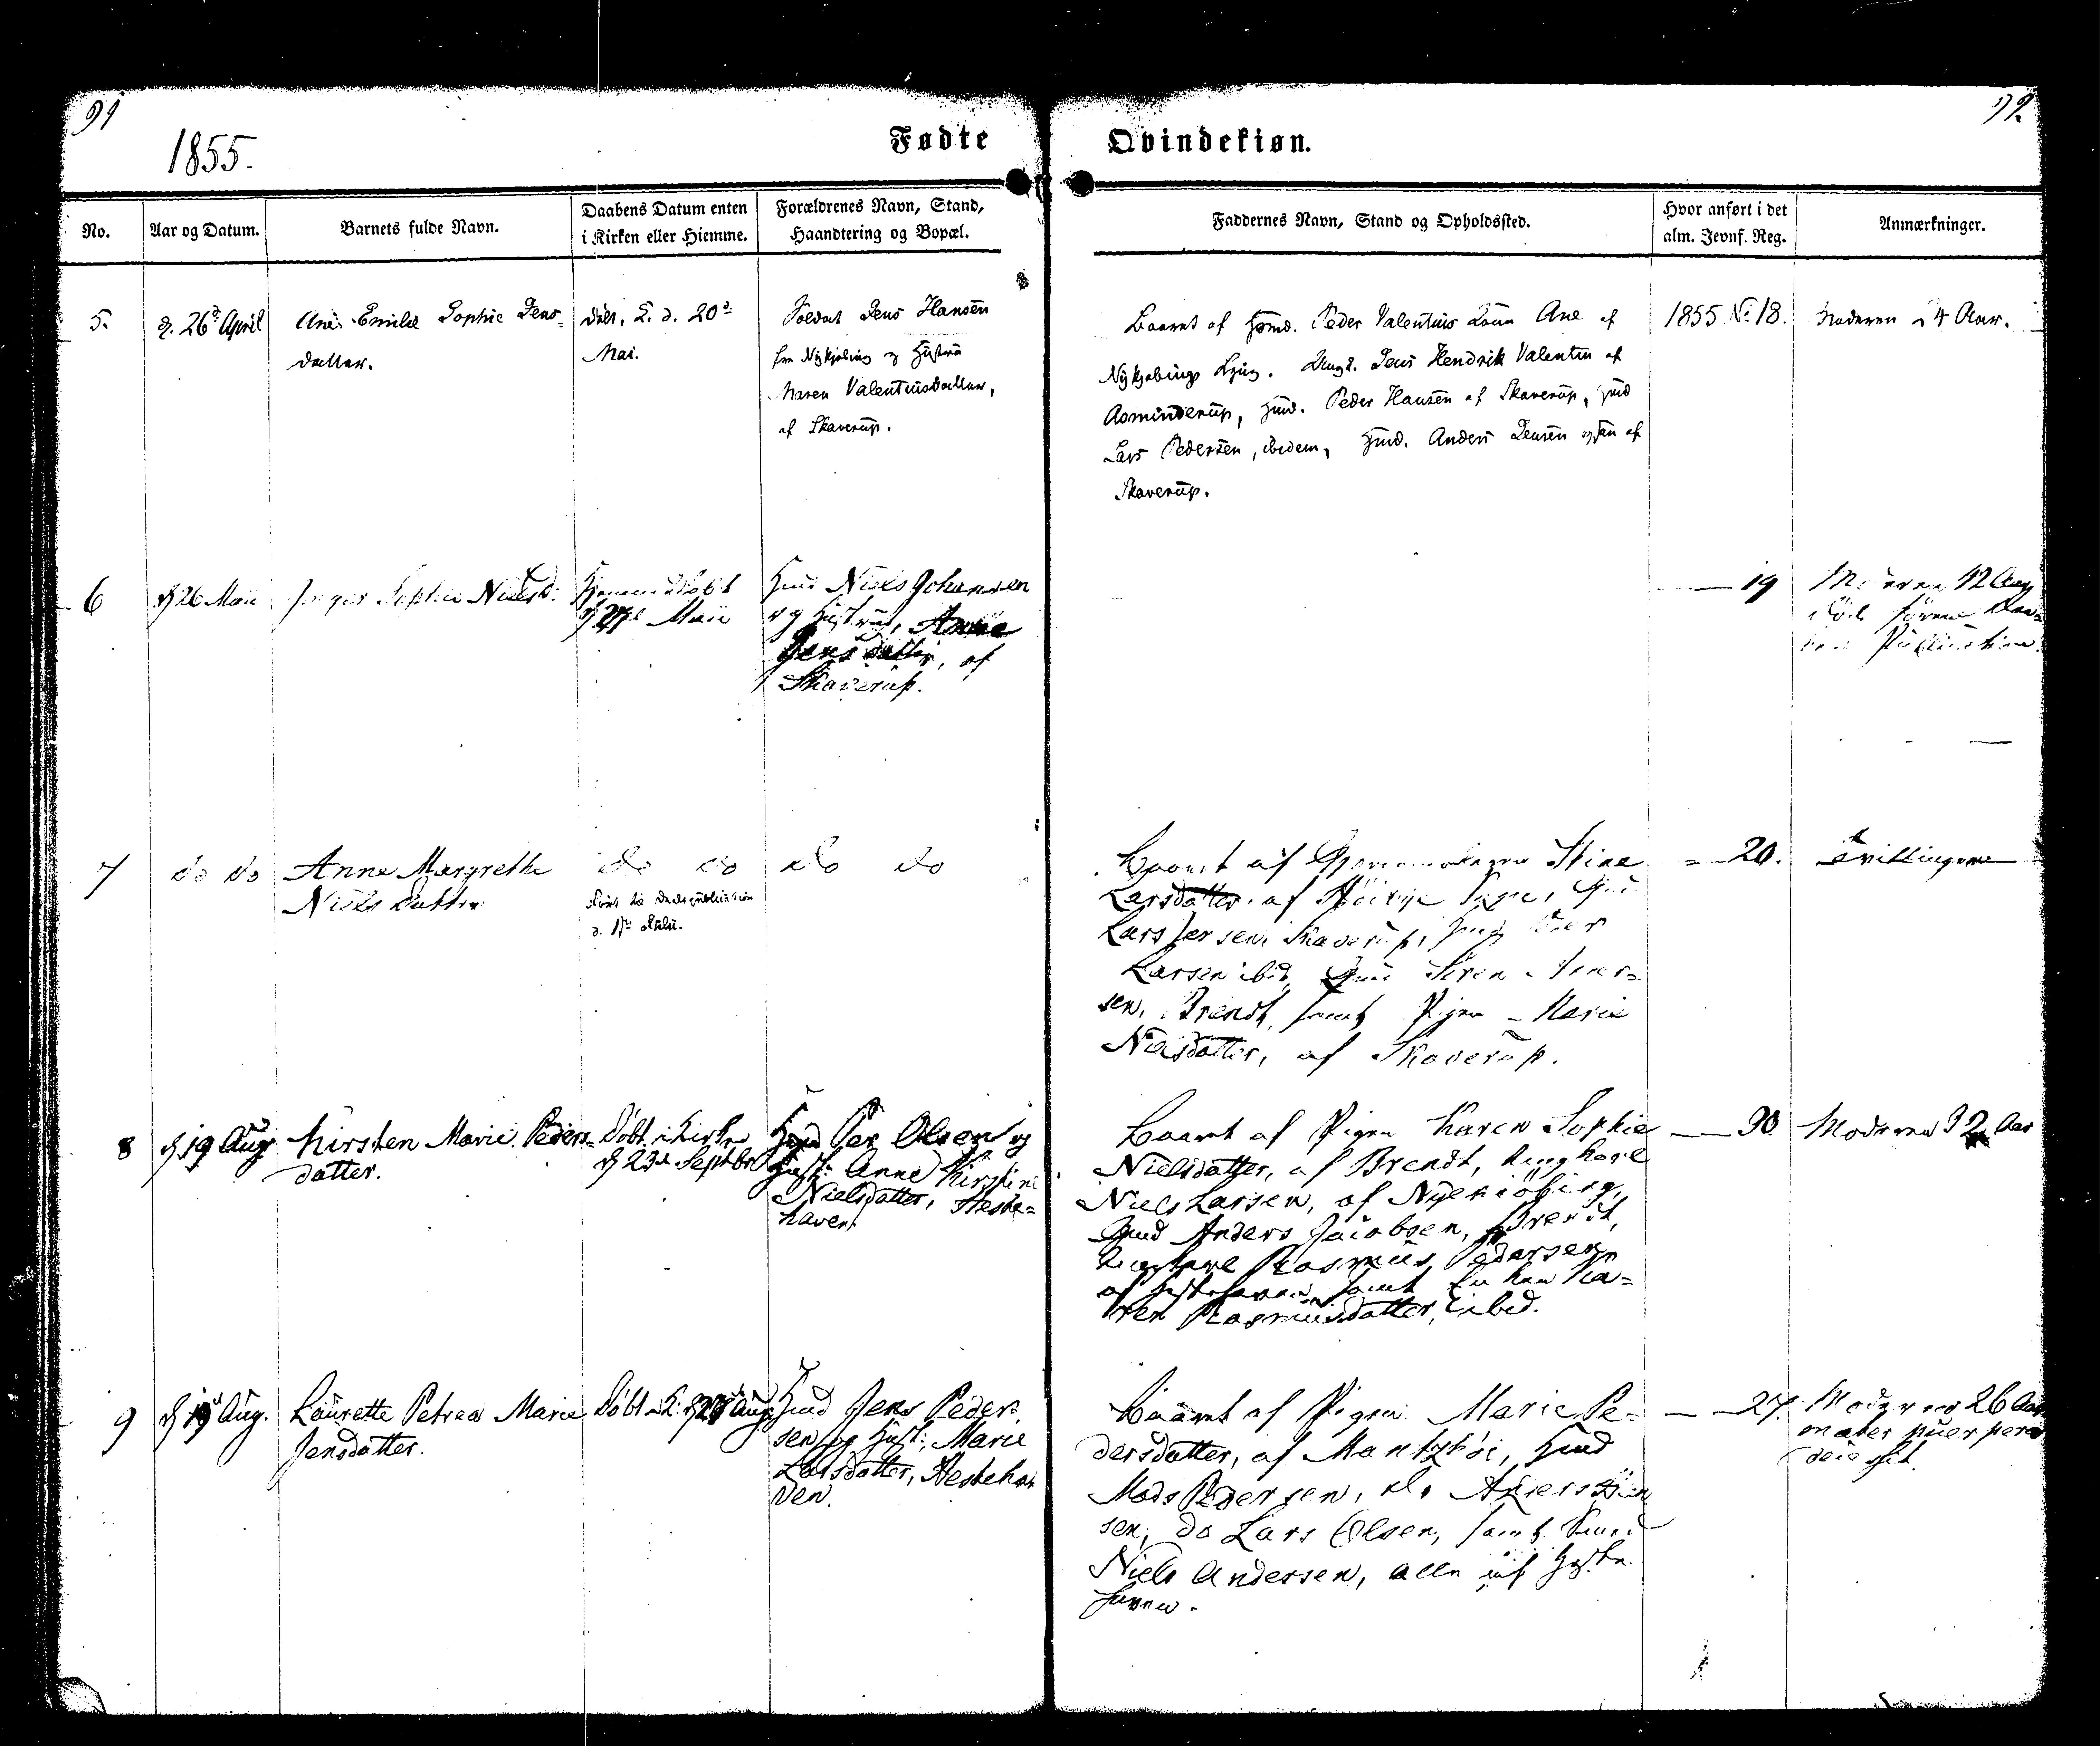 91
92
1855.
Fødte
Qvindekiøn.
No.
Aar og Datum.
Barnets fulde Navn.
Daabens Datum enten
i Kirken eller Hiemme.
Forældrenes Navn, Stand,
Haandtering og Bopæl.
Faddernes Navn, Stand og Opholdssted.
Hvor anført i det
alm. Jevnf. Reg.
Anmærkninger.
5.
d. 26d April
Ane Emilie Sophie Jens-
datter.
døbt. K. d. 20d
Mai.
Soldat Jens Hansen
fra Nykjøbing og Hustru
Maren Valentinsdatter,
af Skaverup.
Baaret af Hmd. Peder Valentins Kone Ane af
Nykjøbings Lyng. Ungk. Jens Hendrik Valentin af
Asminderup, Hmd. Peder Hansen af Skaverup, Hmd
Lars Pedersen, ibidem, Hmd. Anders Jensen af
Skaverup.
1855 No 18.
Moderen 24 Aar.
6
d 26 Maii
Inger Sophie Nielsd:
Hjemmedøbt
d 27d Maii
Hmd Niels Johansen
og Hustru, Anne
Jensdatter, af
Skaverup.
19
Moderen 42 Aar
død førend Daa-
bens Publication
7
do do
Anne Margrethe
Niels Datter
do do
d. 17de
do do
Baaret af
Stine
Larsdatter af
Lars Jensen, Skaverup,
Larsen ibid, Hmd Søren
sen, Brendt, samt Pigen Marie
Nielsdatter, af Skaverup.
20.
Tvillinger
8
d 19 Aug
Kirsten Marie Peders-
datter.
Døbt i Kirken
d 23d Septbr
Hmd Per Olsen og
Hust: Anne Kirstine
Nielsdatter, Heste-
haven.
Baaret af Pigen Karen Sophie
Nielsdatter, af Brendt, Ungkarl
Niels Larsen, af Nyekiöbing,
Hmd Anders Jacobsen, Brendt,
Ungkarl Rasmus Pedersen
af Hestehaven samt Enken Ka-
ren Rasmusdatter, ibid.
30
Moderen 32 Aar
9
d 19d Aug.
Laurette Petrea Marie
Jensdatter.
Døbt i K: d 27d Aug
Hmd Jens Peder-
sen og Hust: Marie
Larsdatter, Hesteha-
ven.
Baaret af Pigen Marie Pe-
dersdatter, af Mantzhöi, Hmd
Mads Pedersen, do Anders
sen, do Lars Olsen, samt Smed
Niels Andersen, alle af Heste
haven.
27.
Moderen 26 Aar
mater puerpera